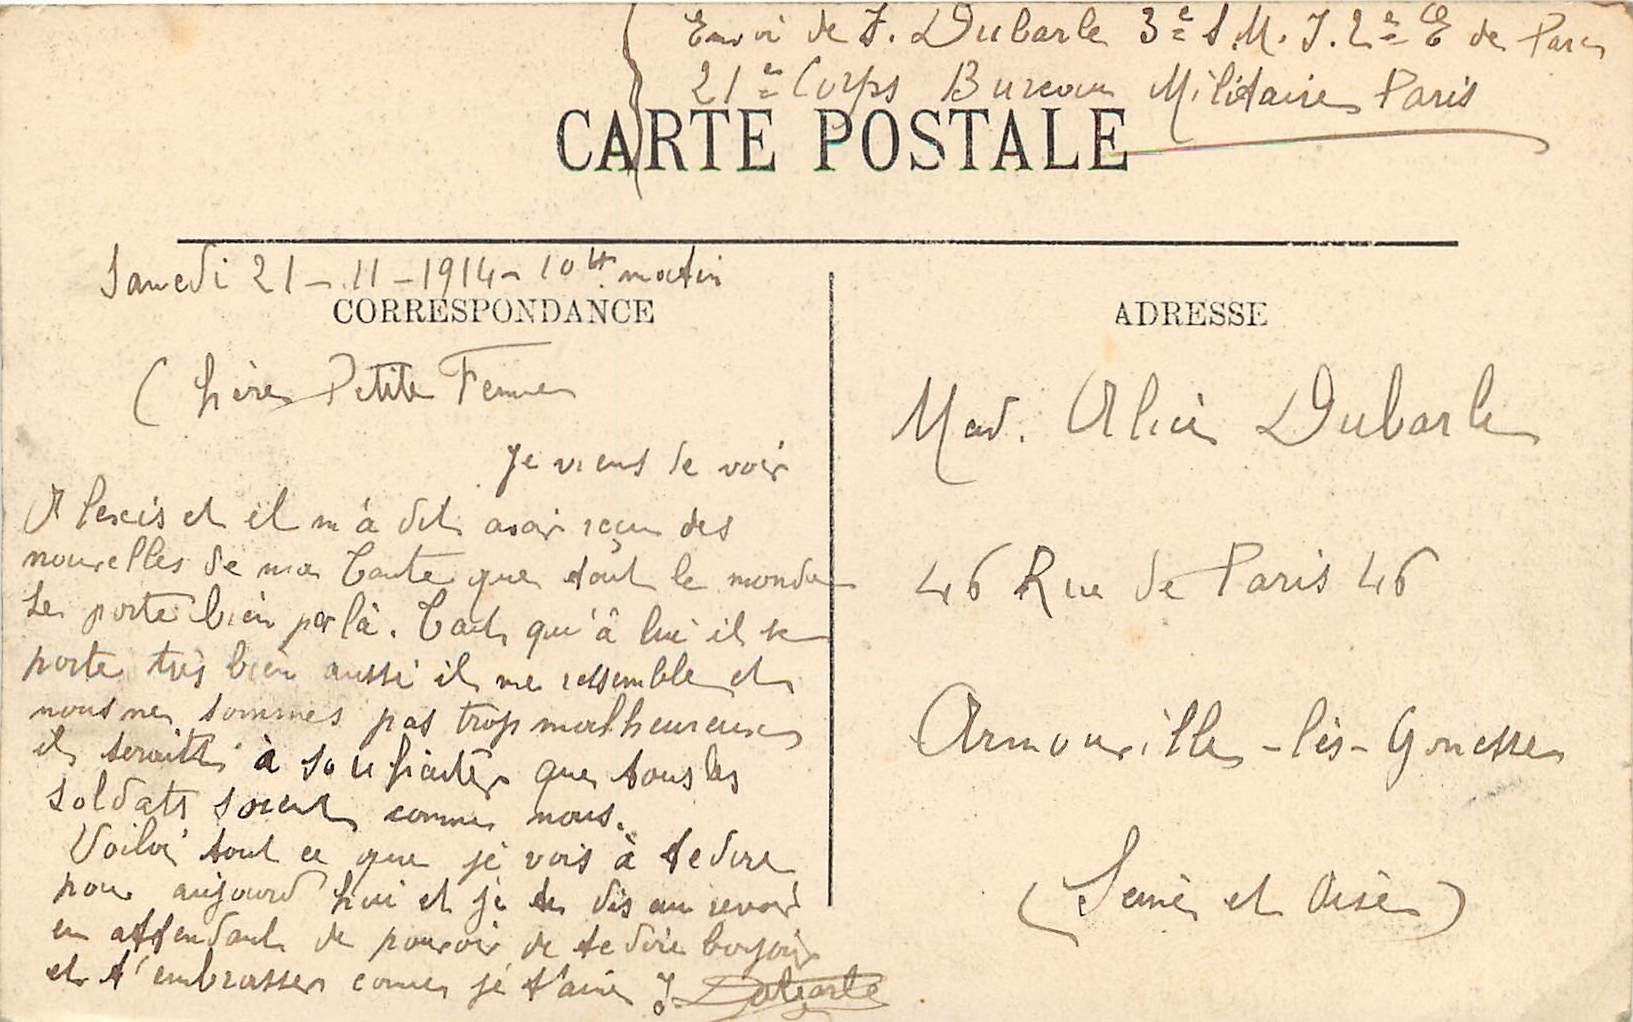 Envoi de J. Dubarle 3e S.M.J. 2e Cie de Parc
21e Corps Bureau Militaire Paris
CARTE POSTALE
Samedi 21-11-1914- 10 hs. matin
CORRESPONDANCE
Chère Petite Femme
Je viens de voir
Alexis et il m'à dit avoir reçu des
nouvelles de ma Tante que tout le monde
se porte bien par là. Tant qu'à lui il se
porte très bien aussi il me ressemble et
nous ne sommes pas trop malheureux
il serait à souhaiter que tous les
soldats soient comme nous.
Voilà tout ce que je vois à te dire
pour aujourd'hui et je te dis au revoir
en attendant de pouvoir de te dire bonjour
et t'embrasser comme je t'aime J. Dubarle
ADRESSE
Mad. Alice Dubarle
46 Rue de Paris 46
Arnouville-lès-Gonesse
(Seine et Oise)